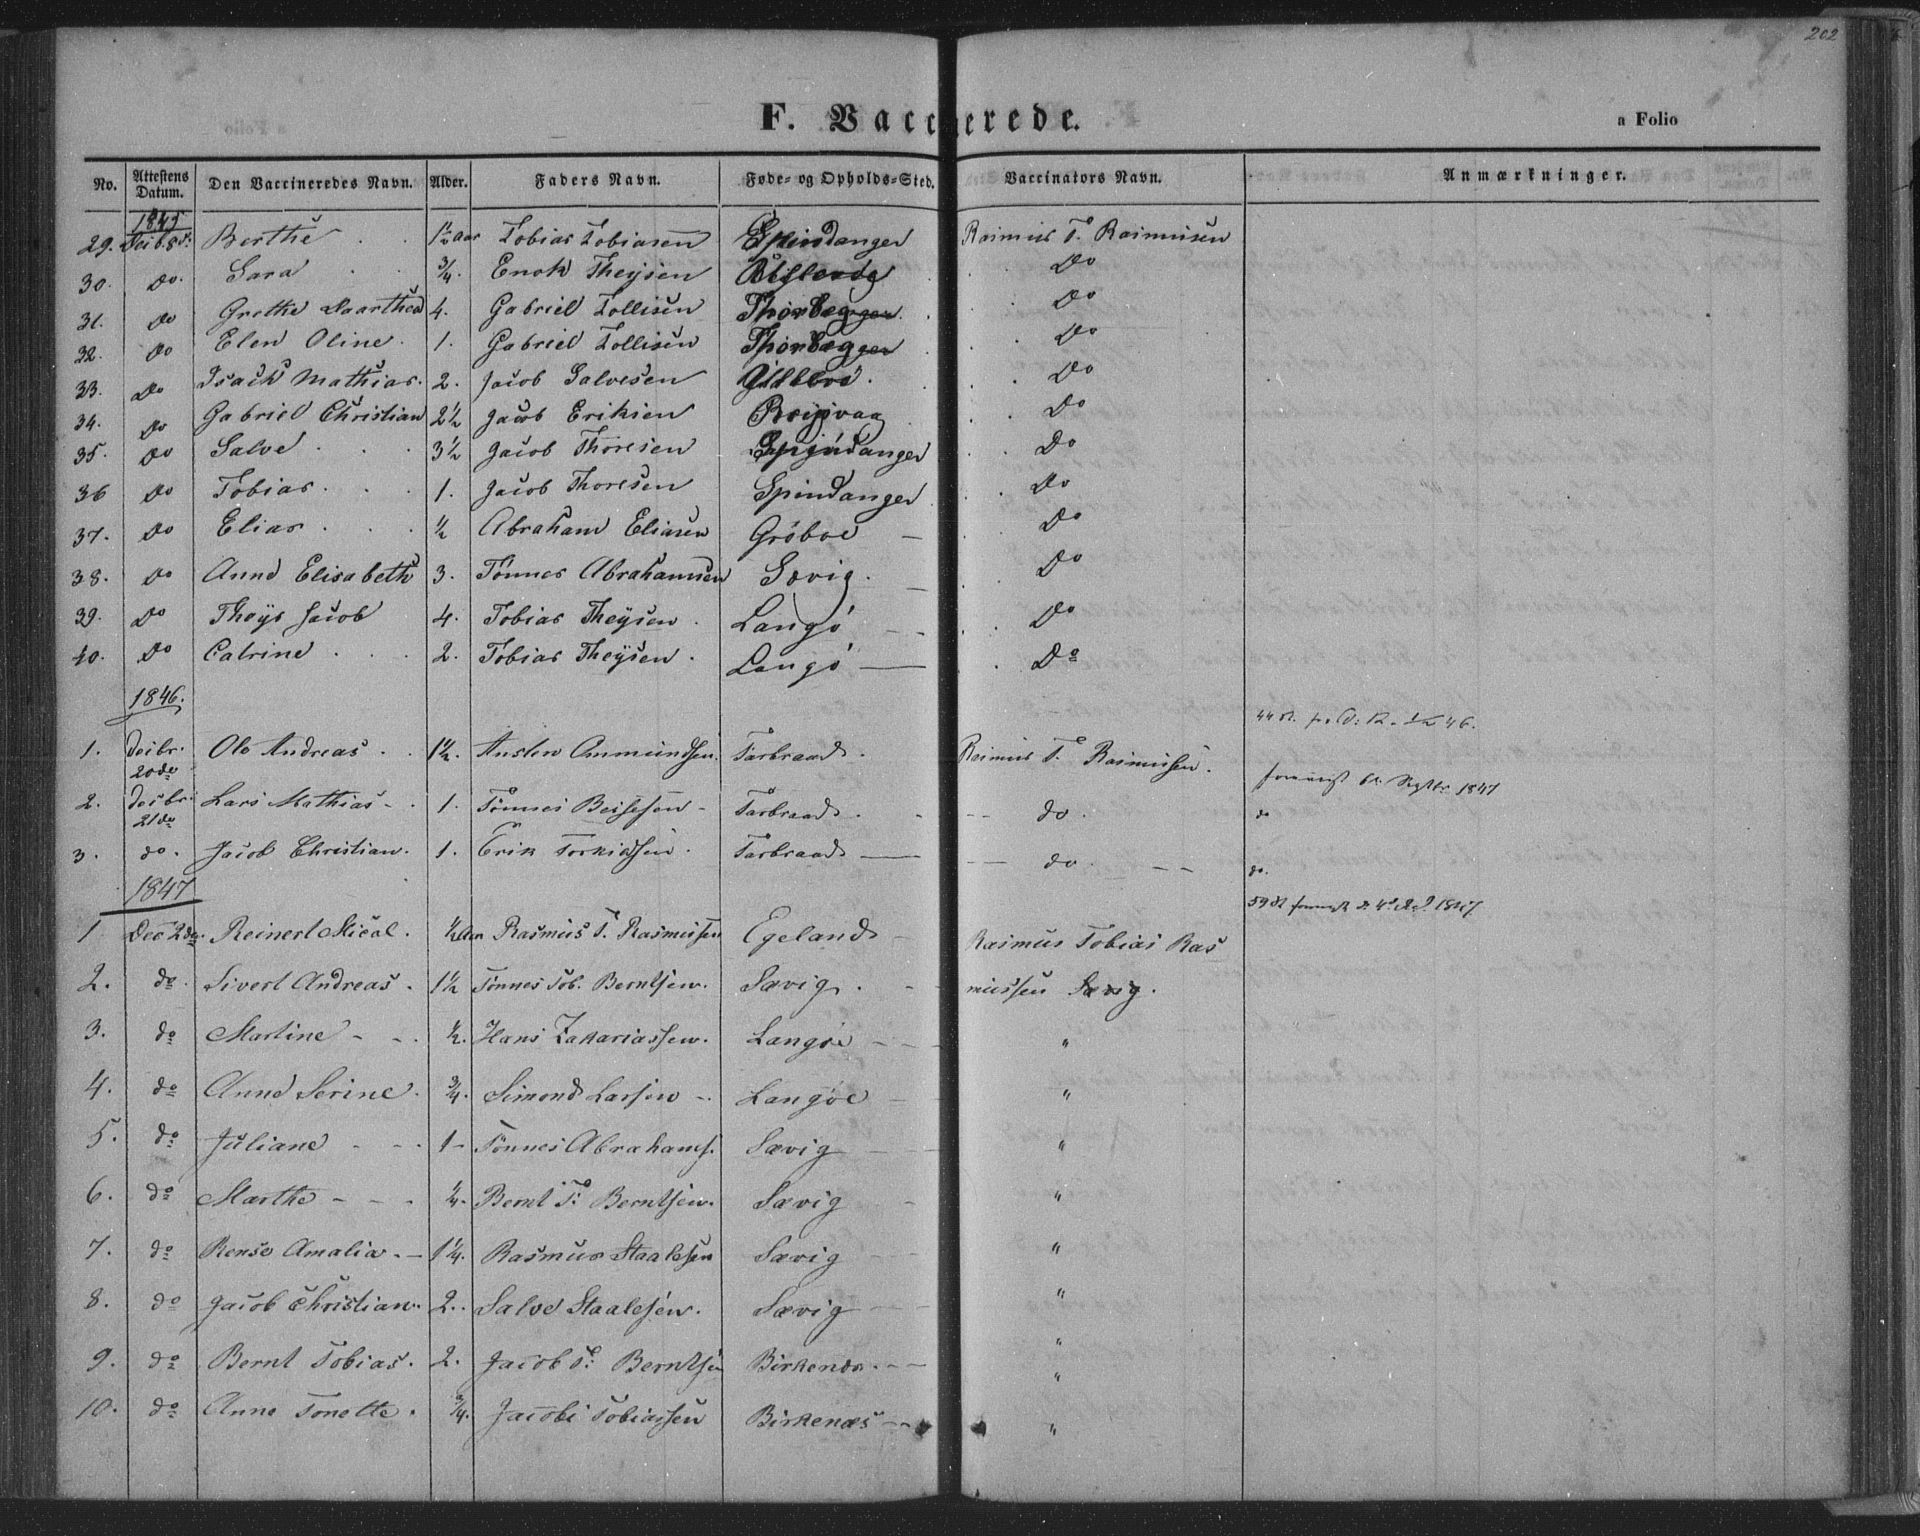 202
F. Vaccinerede.
a Folio
No. Attestens Datum. Den Vaccineredes Navn. Alder. Faders Navn. Føde- og Opholds-Sted. Vaccinators Navn. Anmærkninger.
1845
29. Berthe 1½ Aar Tobias Tobiasen Spindanger Rasmus T. Rasmusen
30. Do. Sara ¾. Enok Theysen Do
31. Do Grethe Daarthea 4. Gabriel Tollisen Do
32. Do Elen Oline. 1. Gabriel Tollisen Do
33. Do Isack Mathias. 2. Jacob Salvesen Do
34. Do Gabriel Christian 2½ Jacob Eriksen Do
35. Do Salve 3½ Jacob Thoresen Spindanger Do
36 Do Tobias. 1. Jacob Thoresen Spindanger Do
37. Do Elias ½ Abraham Eliasen Grøboe Do
38. Do Anne Elisabeth 3. Tønnes Abrahamsen Sævig. Do
39. Do Theys Jacob 4. Tobias Theysen. Langø Do
40. Do Catrine 2. Tobias Theysen. Langø Do
1846.
1. Desbr. 20de Ole Andreas. 1½. Austen Anmundsen. Tarbraad. Rasmus T. Rasmussen.
2. Desbr. 21de Lars Mathias 1. Tønnes Tarbraad. do. do
3. do. Jacob Christian. 1. Erik Torkildsen. Tarbraad do do.
1847
1 Dec 2den. Reinert Mical. ½ Aar Rasmus T. Rasmussen Egeland Rasmus Tobias Ras
2. do. Sivert Andreas. 1½ Tønnes Tob. Berntsen. Sævig. mussen Sævig.
3. do Martine ½. Hans Zakariassen. Langøe "
4. do Anne Serine. ¾. Simond Larsen Langøe "
5. do Juliane 1 Tønnes Abrahams. Sævig "
6. do Marthe ¼. Bernt T: Berntsen. Sævig "
7. do Rense Amalia. 1¼. Rasmus Staalesen Sævig "
8. do Jacob Christian. 2. Salve Staalesen. Sævig "
9. do Bernt Tobias. 2. Jacob T: Berntsen Birkenæs. "
10. do Anne Tonette. ¾. Jacob Tobiassen Birkenæs "